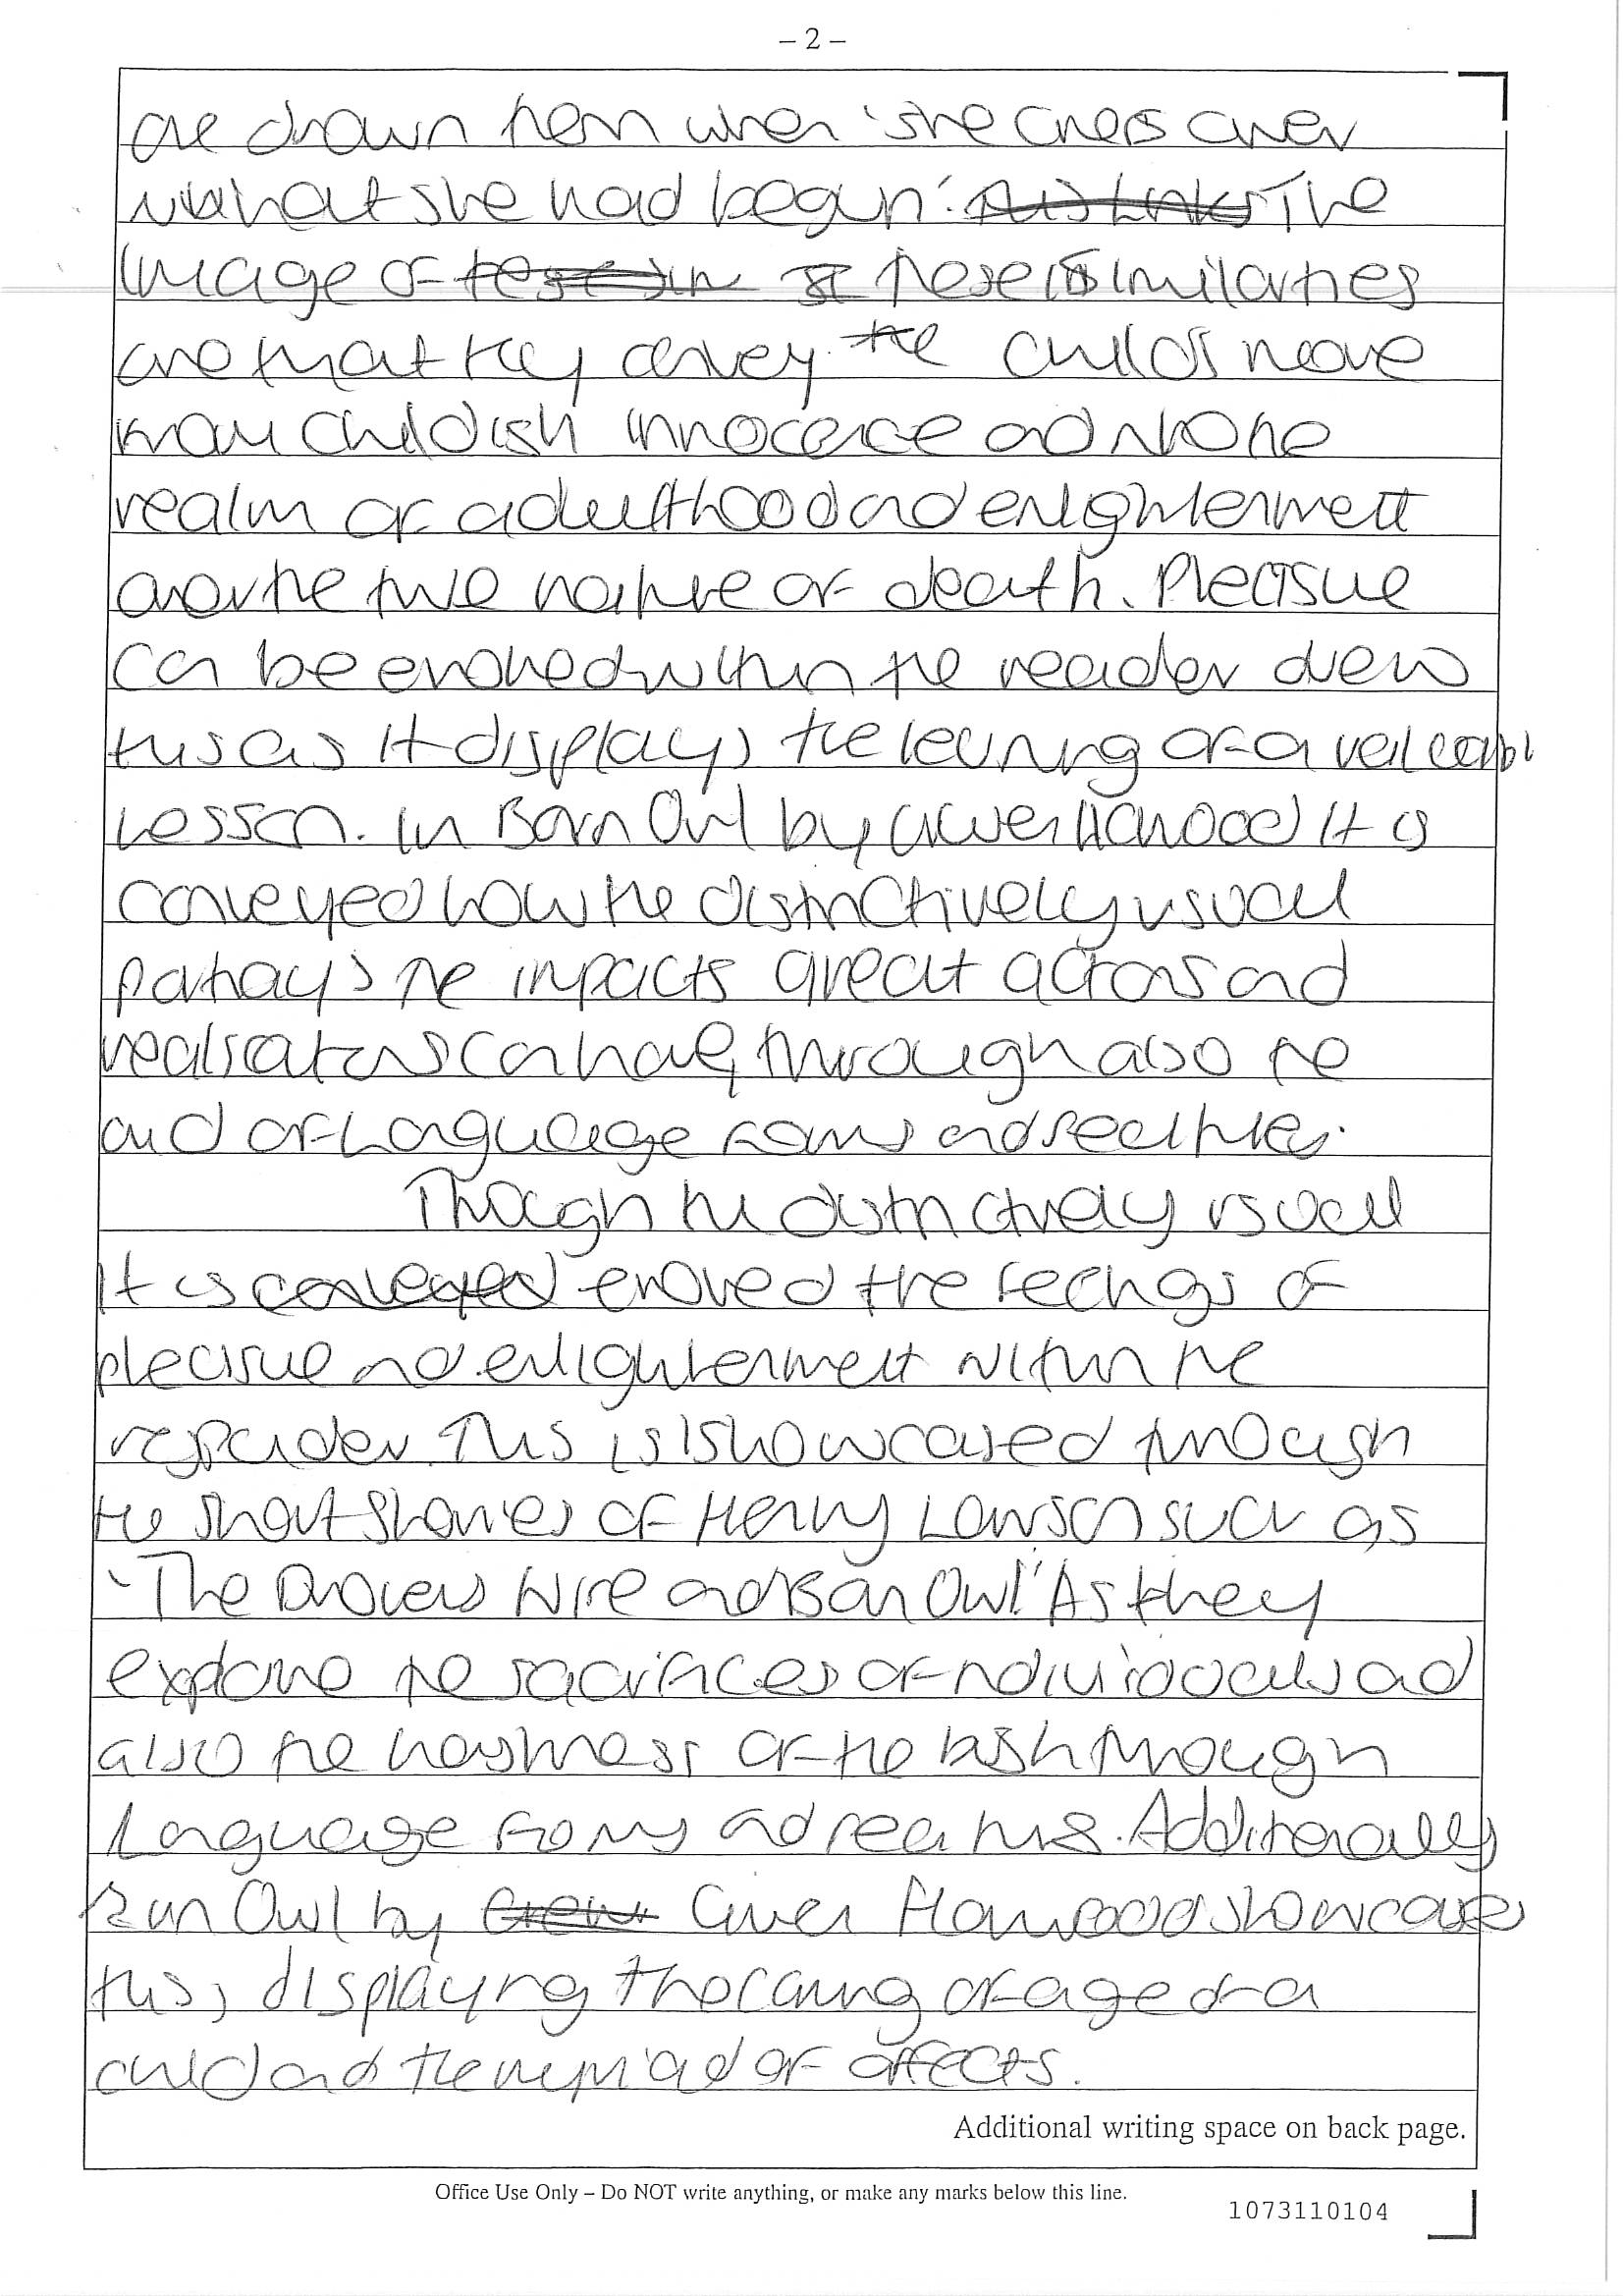 – 2 –
are drawn hem when 'she cners over
what she had begun'. The
image of these similarities
are that they convey the child's move
from childish innocence and into the
realm of adulthood and enlightenment
over the true nature of death. Pleasue
can be evoked within the reader drew
this as it displays the learning of a
lesson. In Barn Owl by Gwen Harwood it is
conveyed how the distinctively visual
portrays the impacts great actions and
realisations can have, through also the
aid of Language forms and features.
Through the distinctively visual
it is conveyed evoked the feelings of
pleasue and enlightenment within the
responder. This is showcased through
the short stories of Henry Lawson such as
'The Drovers Wife and Barn Owl' As they
explore the sacrifices of individuals and
also the harshness of the bush through
language forms and features. Additionally
Barn Owl by Gwen Harwood showcases
this, displaying the coming of age of a
child and the myriad of affects.
Additional writing space on back page.
Office Use Only – Do NOT write anything, or make any marks below this line.
1073110104